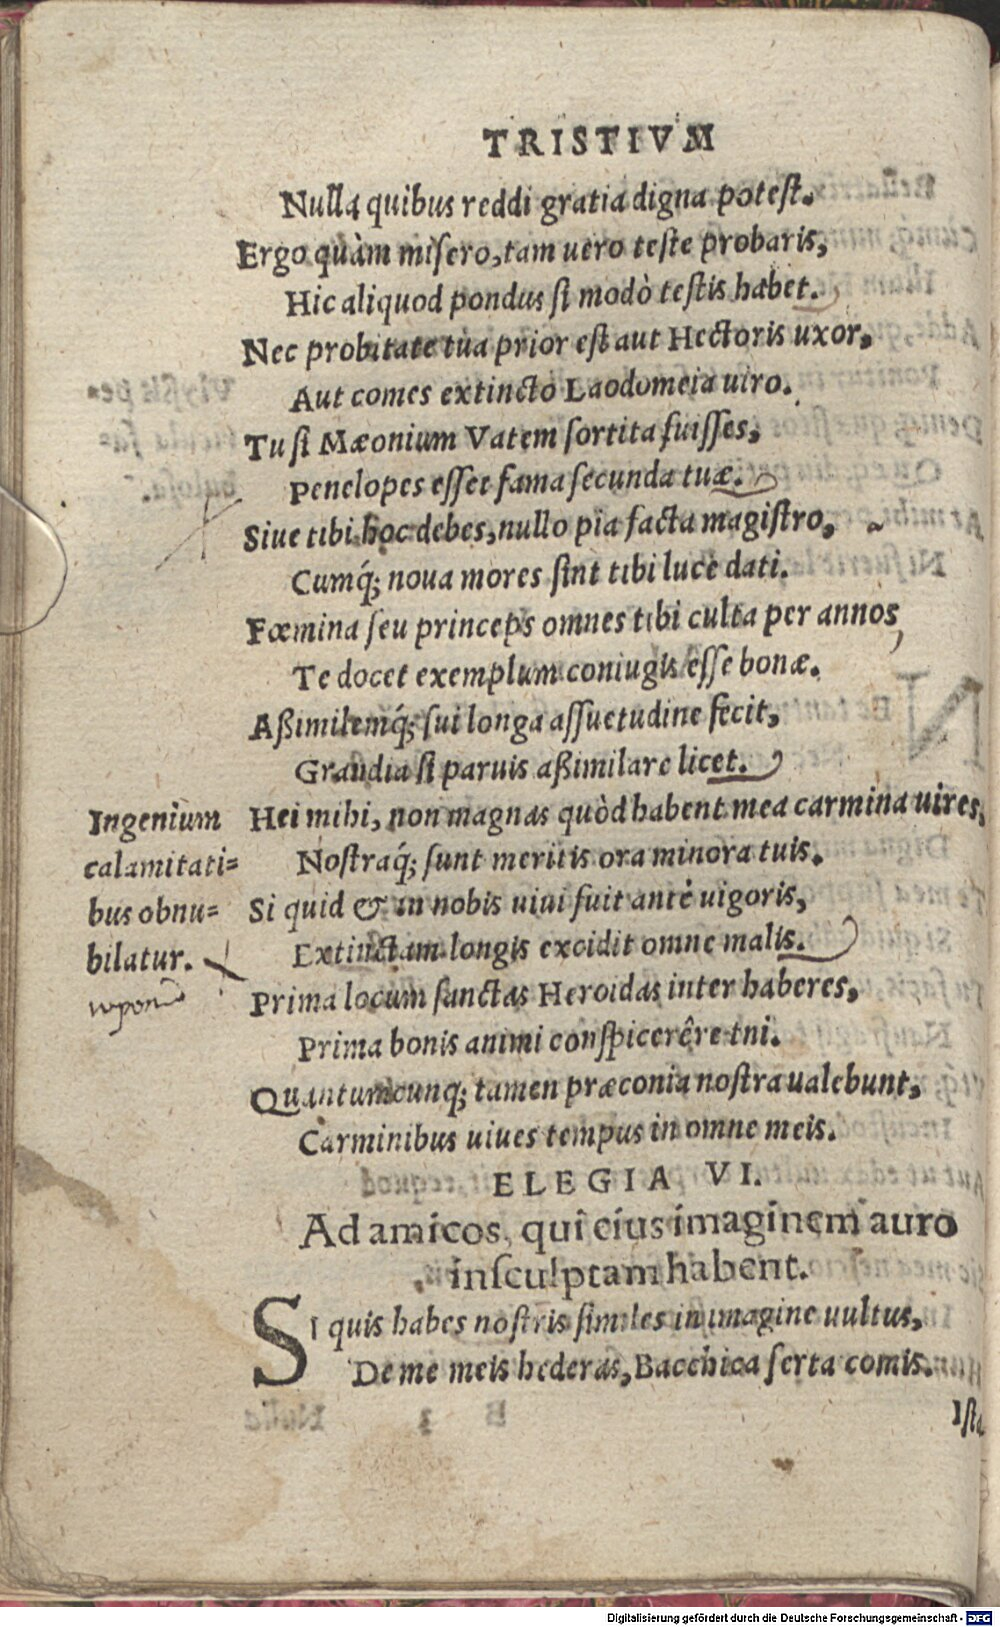 TRISTIVM
Nulla quibus reddi gratia digna potest.
Ergo quàm misero, tam uero teste probaris,
Hic aliquod pondus si modò testis habet.
Nec probitate tua prior est aut Hectoris uxor,
Aut comes extincto Laodomeia uiro.
Tu si Mæonium Vatem sortita fuisses,
Penelopes esset fama secunda tuæ.
Siue tibi hoc debes, nullo pia facta magistro,
Cumq́; noua mores sint tibi luce dati.
Fœmina seu princeps omnes tibi culta per annos,
Te docet exemplum coniugis esse bonæ.
Aßimilemq́; sui longa assuetudine fecit,
Grandia si paruis aßimilare licet.
Ingenium
calamitati=
bus obnu=
bilatur.
Hei mihi, non magnas quòd habent mea carmina uires,
Nostraq́; sunt meritis ora minora tuis.
Si quid & in nobis uiui fuit antè uigoris,
Extinctam longis excidit omne malis.
Prima locum sanctas Heroidas inter haberes,
Prima bonis animi conspicerêre tni.
Quantumcunq; tamen præconia nostra ualebunt,
Carminibus uiues tempus in omne meis.
ELEGIA VI.
Ad amicos, qui eius imaginem auro
insculptam habent.
SI quis habes nostris similes in imagine uultus,
Deme meis hederas, Bacchica serta comis.
Ista
Digitalisierung gefördert durch die Deutsche Forschungsgemeinschaft - DFG